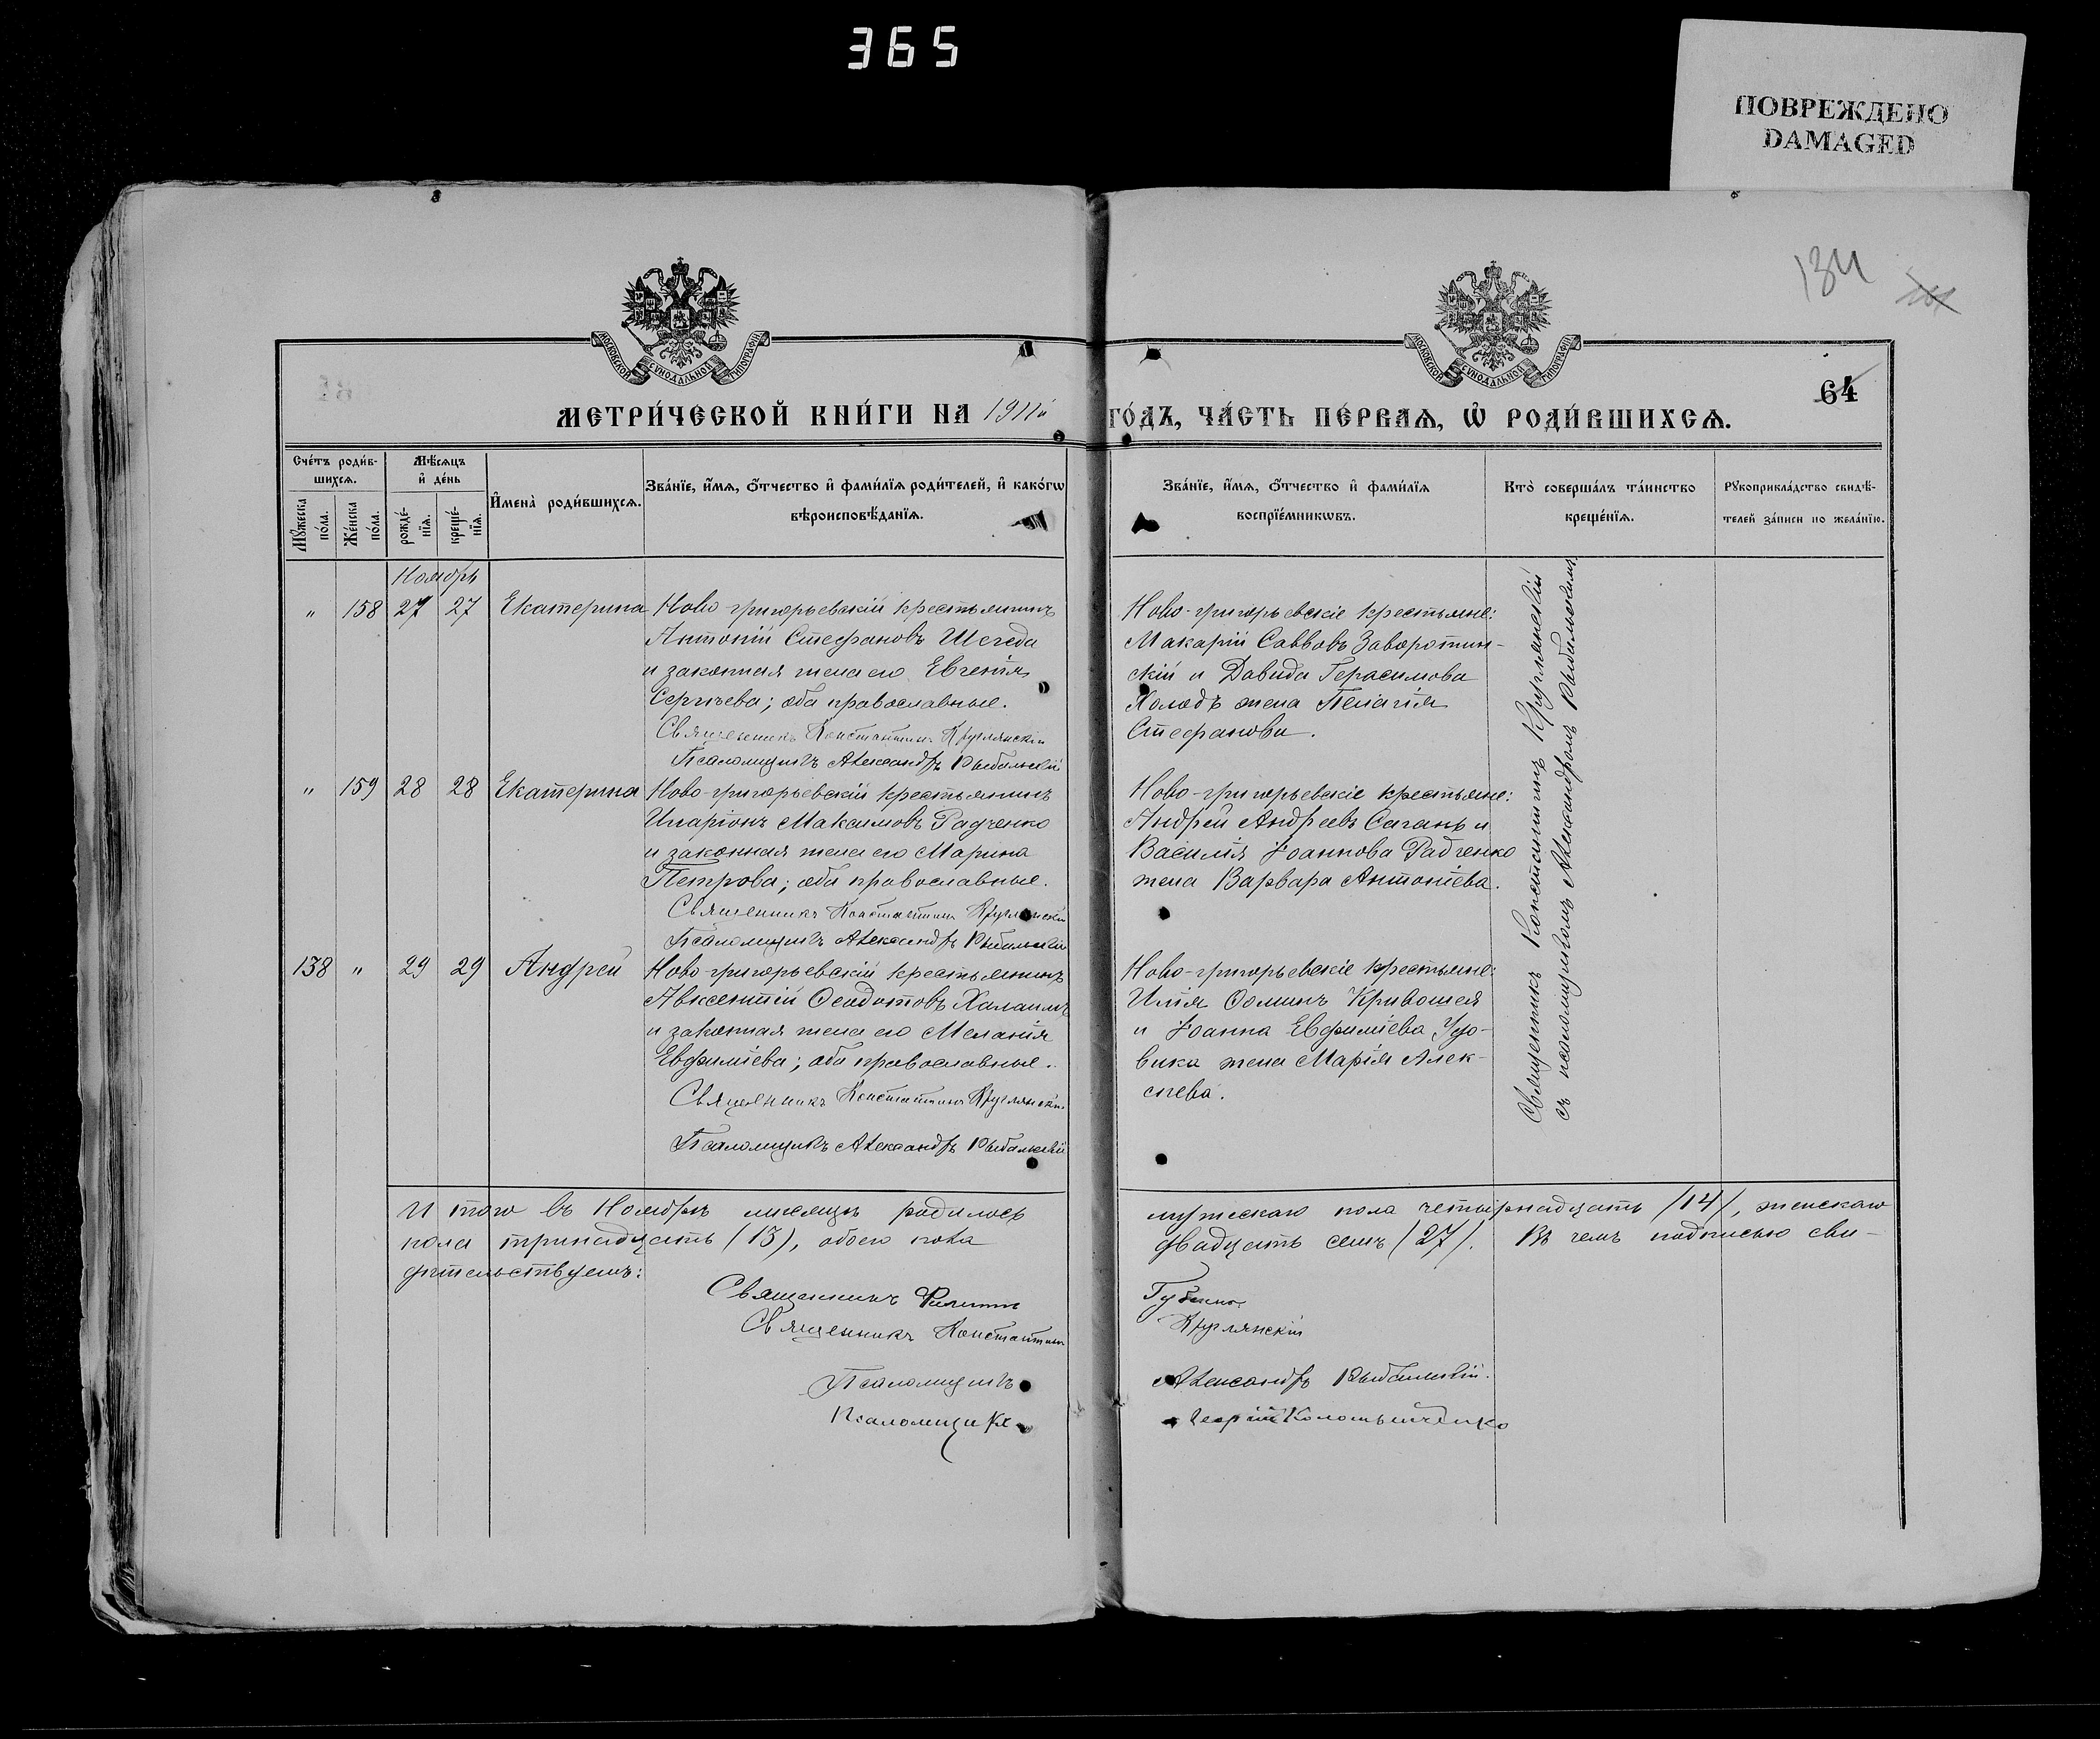 365
ПОВРЕЖДЕНО
DAMAGED
134
64
МОСКОВСКОЙ СѴНОДАЛЬНОЙ ТИПОГРАФІИ
МОСКОВСКОЙ СѴНОДАЛЬНОЙ ТИПОГРАФІИ
МЕТРИ́ЧЕСКОЙ КНИ́ГИ НА 1911й ГО́ДЪ, ЧА́СТЬ ПЕ́РВАѦ, Ѡ РОДИ́ВШИХСѦ.
Сче́тъ роди́в-
шихсѧ.
Мꙋ́жеска по́ла.
Же́нска по́ла.
Мѣ́сѧцъ
и҆ де́нь
рожде́-
нїѧ.
креще́-
нїѧ.
И҆мена̀ роди́вшихсѧ.
Зва́нїе, и҆́мѧ, ѻ҆́тчество и҆ фами́лїѧ роди́телей, и҆ како́гѡ
вѣроисповѣ́данїѧ.
Зва́нїе, и҆́мѧ, ѻ҆́тчество и҆ фами́лїѧ
воспрїе́мникѡвъ.
Кто̀ соверша́лъ та́инство
креще́нїѧ.
Рꙋкоприкла́дство свидѣ́-
телей за́писи по жела́нїю.
Ноябрь
" 158 27 27 Екатерина
Ново-григорьевскій крестьянинъ
Антоній Стефановъ Шегеда
и законная жена его Евгенія
Сергѣева; оба православные.
Священникъ Константинъ Круглянскій
Псаломщикъ Александръ Рыбальскій
Ново-григорьевскіе крестьяне:
Макарій Саввовъ Заворотин-
скій и Давида Герасимова
Холодъ жена Пелагія
Стефанова.
" 159 28 28 Екатерина
Ново-григорьевскій крестьянинъ
Иларіонъ Максимовъ Радченко
и законная жена его Марина
Петрова; оба православные.
Священникъ Константинъ Круглянскій
Псаломщикъ Александръ Рыбальскій
Ново-григорьевскіе крестьяне:
Андрей Андреевъ Сагань и
Василія Іоаннова Радченко
жена Варвара Антоніева.
138 " 29 29 Андрей
Ново-григорьевскій крестьянинъ
Авксентій Ѳеодотовъ Халаимъ
и законная жена его Меланія
Евфиміева; оба православные.
Священникъ Константинъ Круглянскій
Псаломщикъ Александръ Рыбальскій
Ново-григорьевскіе крестьяне:
Илія Ѳоминъ Кривошея
и Іоанна Евфиміева Удо-
вика жена Марія Алек-
сѣева.
Священникъ Константинъ Круглянскій
съ псаломщикомъ Александромъ Рыбальскимъ
Итого въ Ноябрѣ мѣсяцѣ родилось мужескаго пола четырнадцать (14), женскаго
пола тринадцать (13), обоего пола двадцать семь (27). Въ чемъ подписью сви-
дѣтельствуемъ:
Священникъ Филиппъ
Священникъ Константинъ Круглянскій
Псаломщикъ Александръ Рыбальскій.
Псаломщикъ Георгій